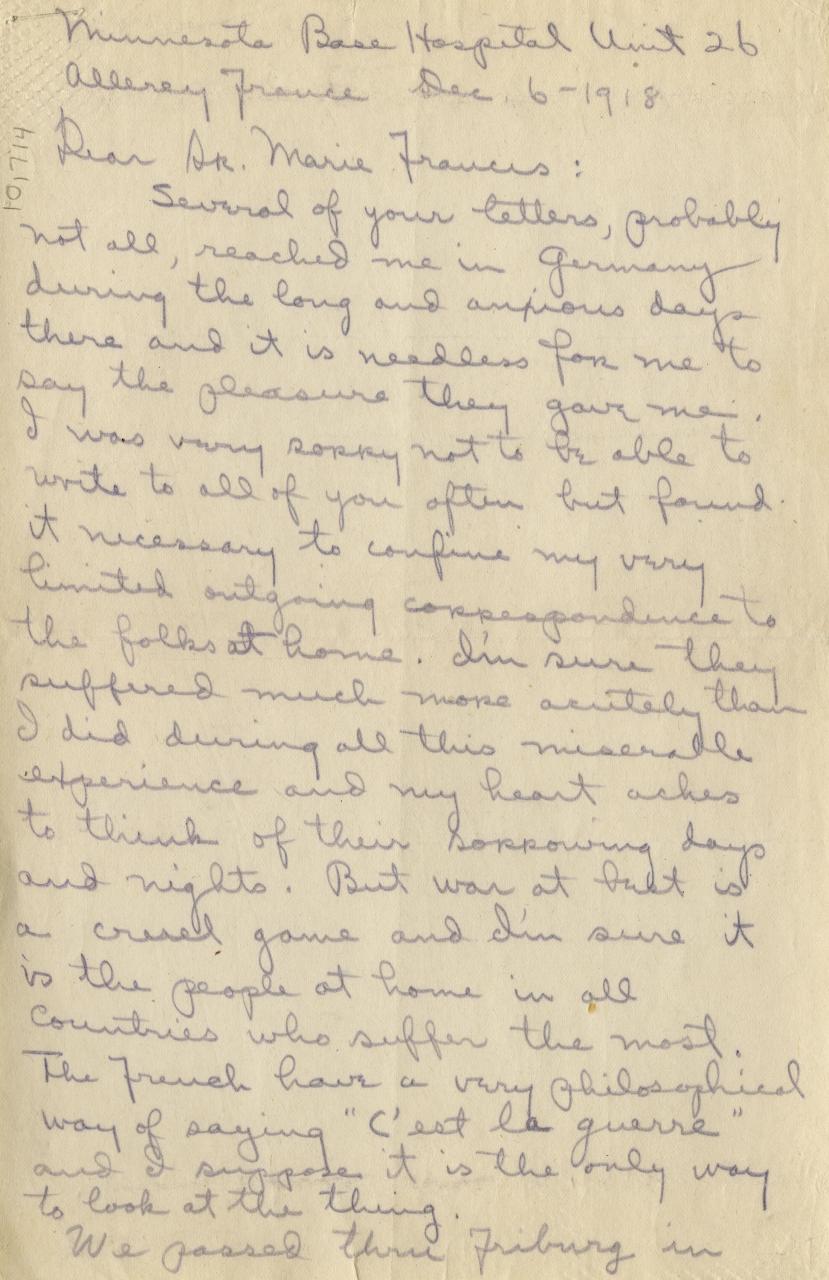 Minnesota Base Hospital Unit 26
Allerey France Dec. 6-1918
101714
Dear Sr. Marie Francis:
Several of your letters, probably
not all, reached me in Germany
during the long and anxious days
there and it is needless for me to
say the pleasure they gave me.
I was very sorry not to be able to
write to all of you often but found
it necessary to confine my very
limited outgoing correspondence to
the folks at home. I'm sure they
suffered much more acutely than
I did during all this miserable
experience and my heart aches
to think of their sorrowing days
and nights. But war at best is
a cruel game and I'm sure it
is the people at home in all
countries who suffer the most.
The French have a very philosophical
way of saying "C'est la guerre"
and I suppose it is the only way
to look at the thing.
We passed thru Friburg in